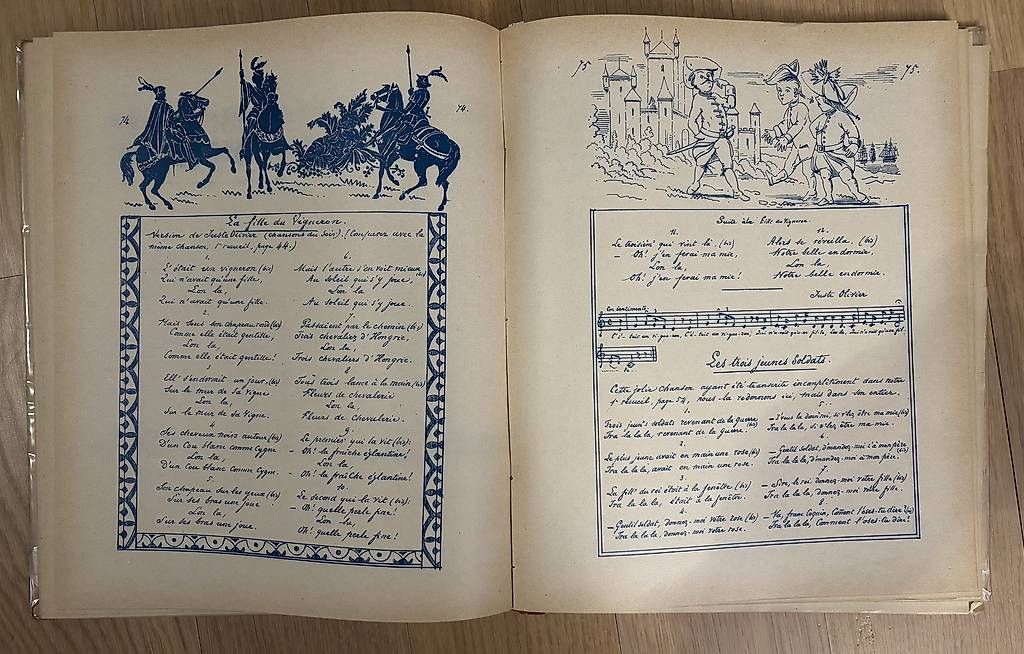 74
74.
La fille du Vigneron.
Version de Juste Olivier (chansons du soir). (Comparez avec la
même chanson, 1er recueil, page 44.)
1.
C'était un vigneron (bis)
Qui n'avait qu'une fille,
Lon la,
Qui n'avait qu'une fille.
2.
Mais sous son chapeau rond (bis)
Comme elle était gentille,
Lon la,
Comme elle était gentille!
3
Ell' s'endormit un jour, (bis)
Sur le mur de sa vigne
Lon la,
Sur le mur de sa vigne.
4
Ses cheveux noirs autour (bis)
D'un cou blanc comme cygne.
Lon la,
D'un cou blanc comme cygne.
5.
Son chapeau sur les yeux (bis)
Sur ses bras une joue
Lon la,
Sur ses bras une joue.
6.
Mais l'autre s'en voit mieux (bis)
Au soleil qui s'y joue,
Lon la
Au soleil qui s'y joue.
7.
Passaient par le chemin (bis)
Trois chevaliers d'Hongrie,
Lon la,
Trois chevaliers d'Hongrie.
8
Tous trois lance à la main (bis)
Fleurs de chevalerie
Lon la,
Fleurs de chevalerie.
9
Le premier qui la vit (bis):
- Oh! la fraîche églantine!
Lon la
- Oh! la fraîche églantine!
10.
Le second qui la vit (bis):
- Oh! quelle perle fine!
Lon la,
Oh! quelle perle fine!
75
75.
Suite à La fille du Vigneron.
11.
Le troisièm' qui vint là. (bis)
- Oh! j'en ferai ma mie!
Lon la,
Oh! j'en ferai ma mie!
12.
Alors se réveilla. (bis)
Notre belle endormie,
Lon la
Notre belle endormie.
Juste Olivier
Les trois jeunes Soldats.
Cette jolie chanson ayant été transcrite incomplètement dans notre
1er recueil, page 54, nous la redonnons ici, mais dans son entier.
1.
Trois jeun's soldats revenant de la guerre (bis)
Tra la la la, revenant de la guerre.
2.
Le plus jeune avait en main une rose (bis)
Tra la la la, avait en main une rose.
3.
La fill' du roi était à la fenêtre (bis)
Tra la la la, était à la fenêtre.
4.
- Gentil soldat, donnez-moi votre rose (bis)
Tra la la la, donnez-moi votre rose.
5.
Tra la la la, si v'lez être ma mie.
6.
- Gentil soldat, d'mandez-moi-z-à mon père (bis)
Tra la la la, d'mandez-moi à mon père.
7.
- Sire, le roi, donnez-moi votre fille (bis)
Tra la la la, donnez-moi votre fille.
8
Tra la la la, Comment l'oses-tu dire!